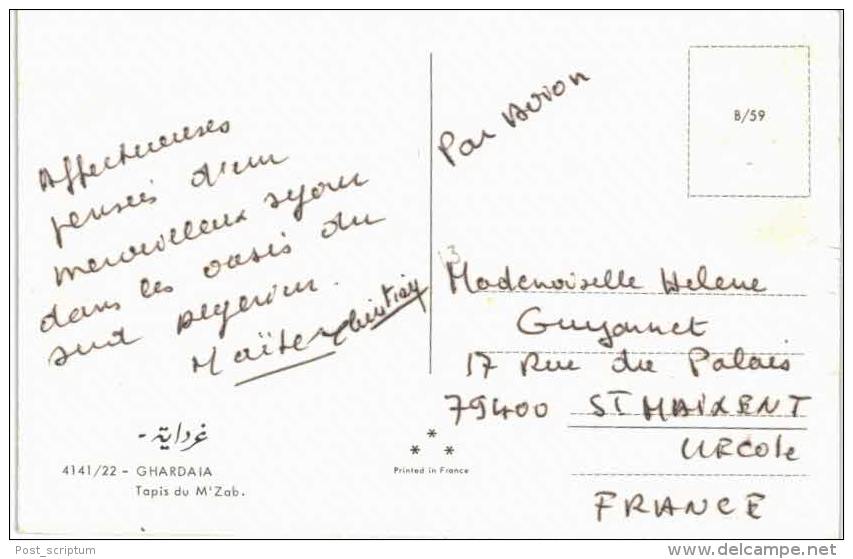 Affectueuses
pensées d'un
merveilleux séjour
dans les oasis du
sud algérien.
Maïte Christian
غرداية -
4141/22 - GHARDAIA
Tapis du M'Zab.
Par Avion
B/59
3
Mademoiselle Helene
Guyonnet
17 Rue du Palais
79400 ST MAIXENT
L'ECole
FRANCE
* * *
Printed in France
Post_scriptum
delcampe.net